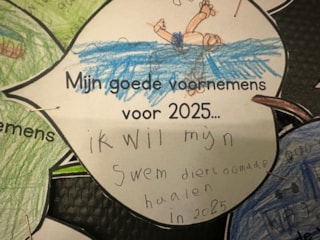 Mijn goede voornemens
voor 2025...
ik wil mijn
Swem
haalen
in 2025
emens